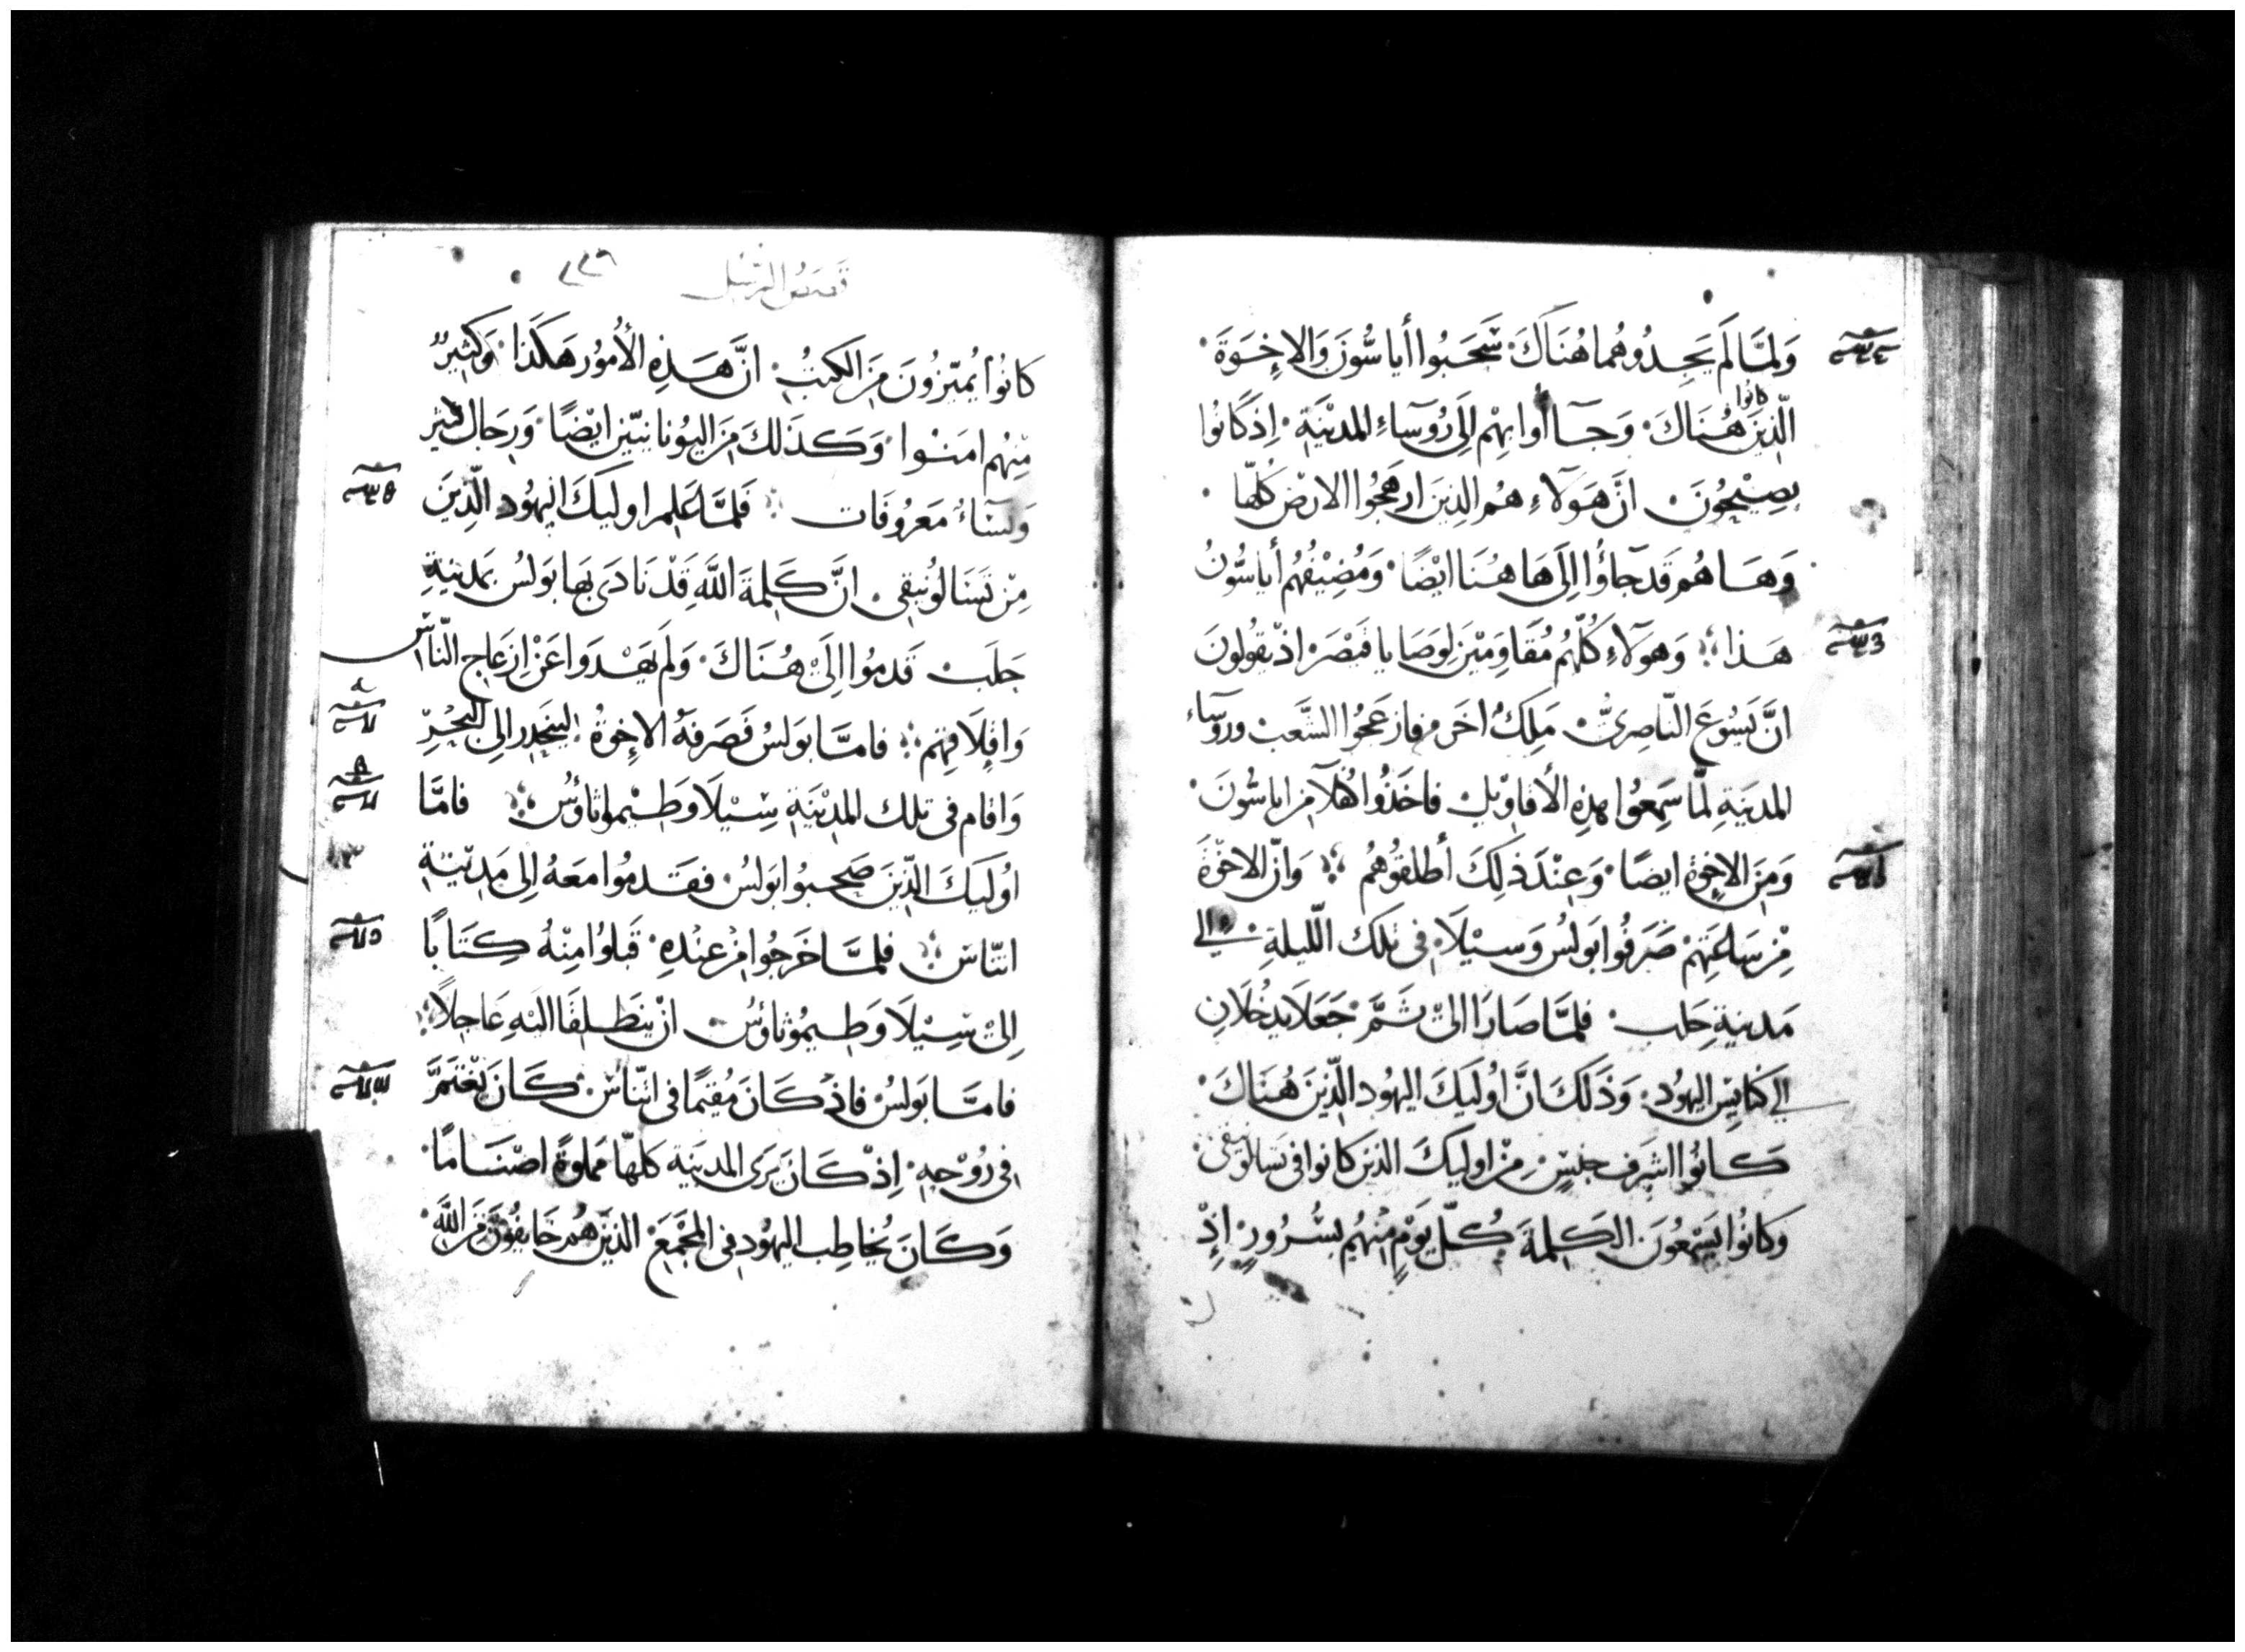 وَلمَّا لَم يَجِدُوهُما هُنَاكَ. سَّحَبُوا أياسُّونَ وَالاِخِوَةَ.
كانوا
الّذِينَ هُنَاكَ. وَجَآأوا بِهِم إلَى رُوَسَاءِ المدِيْنَةِ. اِذ كَانُوا
يصِيْحُونَ. انَّ هَوَلاءِ هُم الذِينَ ارهَجُوا الارضَ كُلّها.
وَهَا هُم قَد جَاؤُا إلَى هَا هُنَا ايْضًا. وَمُضِيْفُهُم أياسُّونُ
هَذا؛ وَهَوَلاءِ كُلّهُم مُقَاوِميْنَ لِوَصَايا قَيْصَر. اذ يقُولُونَ
انَّ يَسُوعَ النّاصِرىَّ. مَلِكُ اخَر. فازعَجُوا الشَّعبَ ورُوسَاء
المدِينَةِ لمَّا سَمِعُوا بهذِهِ الأقاوِيلَ. فاخَذُوا كُفَلَآ مِن اياسُّونَ.
وَمِنَ الاِخِوَةِ ايضًا. وَعِنْدَ ذلِكَ أطلقُوهُم ؛ وَانّ الاخْوَةَ
مِنْ سَاعَتِهِمْ صَرَفُوا بَولُسَ وَسيْلَا. فى تلكَ اللّيلةِ. الى
مَدينةِ حَلب. فلمَّا صَارَا الىْ ثَمَّ. جَعَلَا يدخُلَانِ
الى كنَايسِ اليهُود. وَذَلكَ انَّ اوُليَكَ اليهُود الّذِينَ هُنَاكَ.
كَانُوا اشرَف جنسٍ. مِنْ اوليَكَ الذينَ كانوا فى تسالونيقى.
وَكانُوا يَسْمعُونَ الكلِمةَ كُلّ يَوْمٍ مِنْهُم بسُرُورٍ. اِذْ
قصَصُ الرسُل
كانُوا يُميّزُونَ مِنَ الكتبِ. انَّ هَذِهِ الأُمُور هَكَذَا. وَكثِيرٌ
مِنْهُم امَنُوا. وَكَذلكَ مِنَ اليُونانيّين ايْضًا. وَرِجَال كثير
وَنسَاءٌ مَعرُوفَات ؛ فَلمَّا عَلِم اوليَكَ اليهُود الّذِينَ
مِنْ تسَالُونيقى. انَّ كَلِمةَ اللَّهِ قَدْ نَادَى بهَا بَولسُ بمَدينةِ
حَلَب. قَدمُوا إلَى هُنَاكَ. وَلَم يَهْدَوا عَنْ اِزعَاج النّاسِ
وَاقِلَاقهِم ؛ فامَّا بَولسُ فَصَرفَهُ الاِخوةُ. لينحَدِر الى البَحْرِ
وَاقام فى تلك المدِيْنَةِ سِيْلَا وَطِيْموثَاؤُس ؛ فامَّا
اوُليَكَ الذِّينَ صَحبُوا بَولسُ. فقَدمُوا مَعَهُ الى مَدِينةِ
اتنّاس ؛ فلمَّا خَرجُوا مِنْ عنْدِهِ. قَبلوُا مِنْهُ كِتَابًا
الىْ سِيْلَا وَطيمُوثاؤسُ. انْ ينطَلقَا اليهِ عَاجلاً.
فامَّا بَولسُ فاذ كَانَ مُقيمًا فى اتنّاس. كَانَ يَغْتَمَّ
فى رُوْحِهِ. اِذْ كَانَ يَرَى المدينَة كلهّا مَملوةً اصْنَامًا.
وَكَانَ يُخاطِب اليهُود فى المجْمَعِ. الذيْنَ هُم خَايفُونَ مِنَ اللَّه.